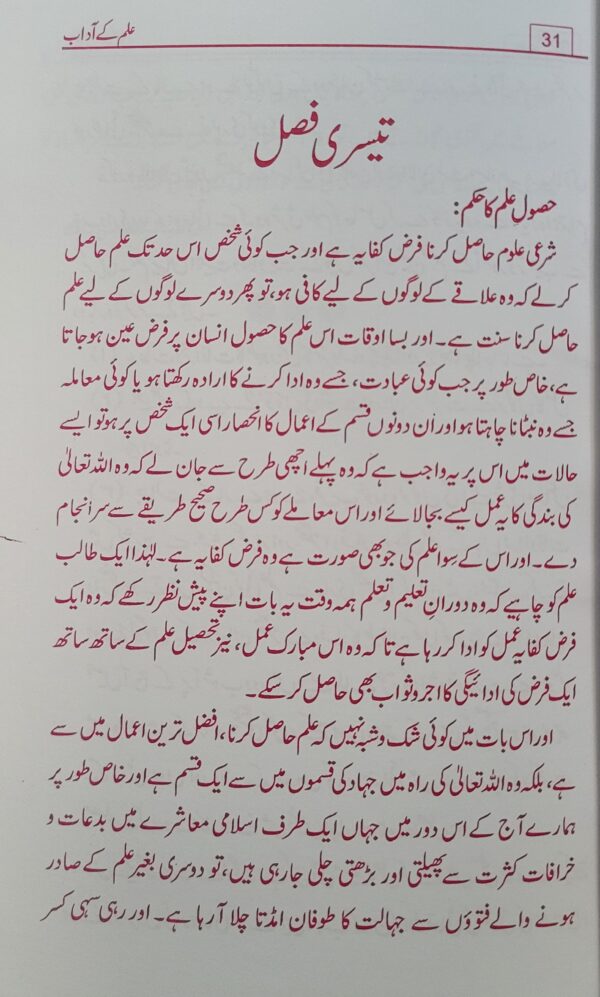 31
علم کے آداب
تیسری فصل
حصولِ علم کا حکم:
شرعی علوم حاصل کرنا فرض کفایہ ہے اور جب کوئی شخص اس حد تک علم حاصل
کر لے کہ وہ علاقے کے لوگوں کے لیے کافی ہو، تو پھر دوسرے لوگوں کے لیے علم
حاصل کرنا سنت ہے۔ اور بسا اوقات اس علم کا حصول انسان پر فرض عین ہو جاتا
ہے، خاص طور پر جب کوئی عبادت، جسے وہ ادا کرنے کا ارادہ رکھتا ہو یا کوئی معاملہ
جسے وہ نبٹانا چاہتا ہو اور ان دونوں قسم کے اعمال کا انحصار اسی ایک شخص پر ہو تو ایسے
حالات میں اس پر یہ واجب ہے کہ وہ پہلے اچھی طرح سے جان لے کہ وہ اللہ تعالیٰ
کی بندگی کا یہ عمل کیسے بجا لائے اور اس معاملے کو کس طرح صحیح طریقے سے سرانجام
دے۔ اور اس کے سوا علم کی جو بھی صورت ہے وہ فرض کفایہ ہے۔ لہٰذا ایک طالب
علم کو چاہیے کہ وہ دورانِ تعلیم و تعلم ہمہ وقت یہ بات اپنے پیش نظر رکھے کہ وہ ایک
فرض کفایہ عمل کو ادا کر رہا ہے تا کہ وہ اس مبارک عمل، نیز تحصیل علم کے ساتھ ساتھ
ایک فرض کی ادائیگی کا اجر و ثواب بھی حاصل کر سکے۔
اور اس بات میں کوئی شک و شبہ نہیں کہ علم حاصل کرنا، افضل ترین اعمال میں سے
ہے، بلکہ وہ اللہ تعالیٰ کی راہ میں جہاد کی قسموں میں سے ایک قسم ہے اور خاص طور پر
ہمارے آج کے اس دور میں جہاں ایک طرف اسلامی معاشرے میں بدعات و
خرافات کثرت سے پھیلتی اور بڑھتی چلی جا رہی ہیں، تو دوسری بغیر علم کے صادر
ہونے والے فتوؤں سے جہالت کا طوفان امڈتا چلا آ رہا ہے۔ اور رہی سہی کسر